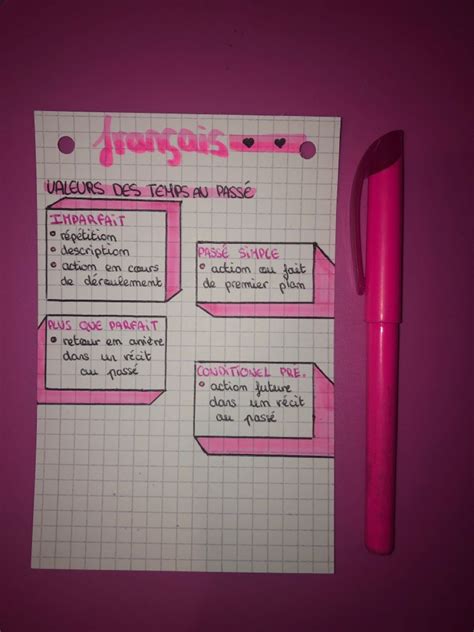 français
VALEURS DES TEMPS AU PASSÉ
IMPARFAIT
• répétition
• description
• action en cours
de déroulement
PASSÉ SIMPLE
• action ou fait
de premier plan
PLUS QUE PARFAIT
• retour en arrière
dans un récit
au passé
CONDITIONEL PRÉ.
• action future
dans un récit
au passé